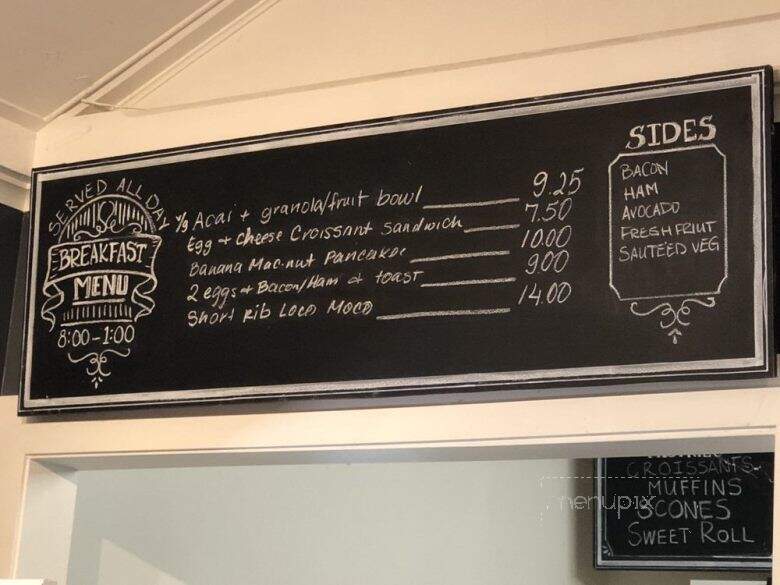 SERVED ALL DAY
BREAKFAST
MENU
8:00-1:00
Acai + granola/fruit bowl 9.25
Egg + Cheese Croissant Sandwich 7.50
Banana Mac-nut Pancakes 10.00
2 eggs + Bacon/Ham + toast 9.00
Short Rib Loco Moco 14.00
SIDES
BACON
HAM
AVOCADO
FRESH FRIUT
SAUTEÉD VEG
CROISSANTS
MUFFINS
SCONES
SWEET ROLL
menupix